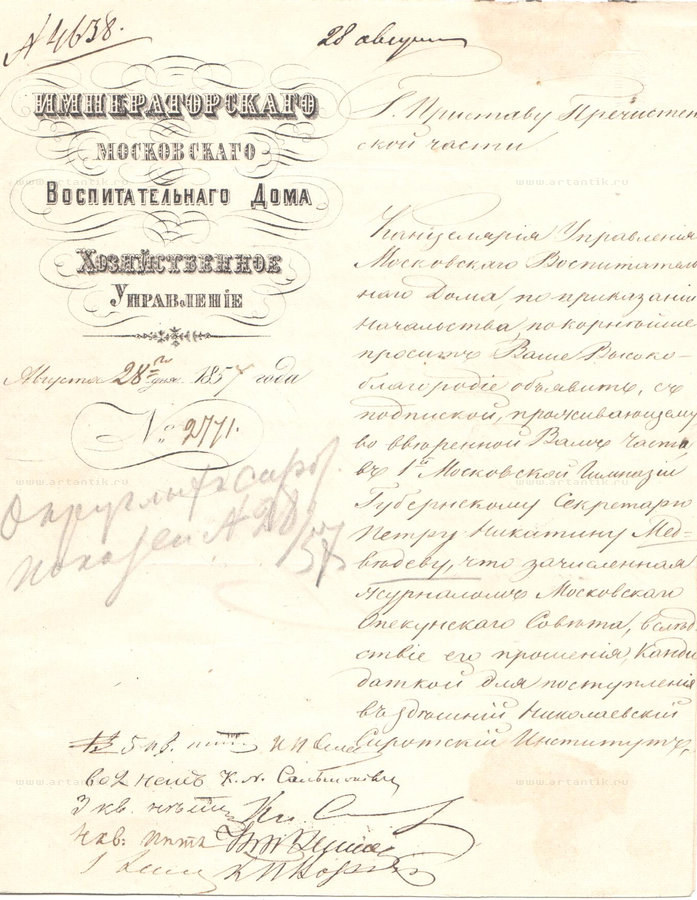 № 4638.
28 августа
ИМПЕРАТОРСКАГО
МОСКОВСКАГО
ВОСПИТАТЕЛЬНАГО ДОМА
ХОЗЯЙСТВЕННОЕ
УПРАВЛЕНІЕ
Августа 28го дня 1857 года
№ 2771.
Г. Приставу Пречистен
ской части
Канцелярія Управленія
Московскаго Воспитатель
наго Дома по приказанію
Начальства, покорнѣйше
проситъ Ваше Высоко-
благородіе объявить, съ
подпиской, проживающему
во ввѣренной Вамъ части,
въ 1й Московской Гимназіи
Губернскому Секретарю
Петру Никитину Мед-
вѣдеву, что зачисленная
Журналомъ Московскаго
Опекунскаго Совѣта, вслѣд
ствіе его прошенія, Канди
даткой для поступленія
въ здѣшній Николаевскій
Сиротскій Институтъ,
5 кв.
во 2
3 кв. нѣтъ
кв.
www.artantik.ru